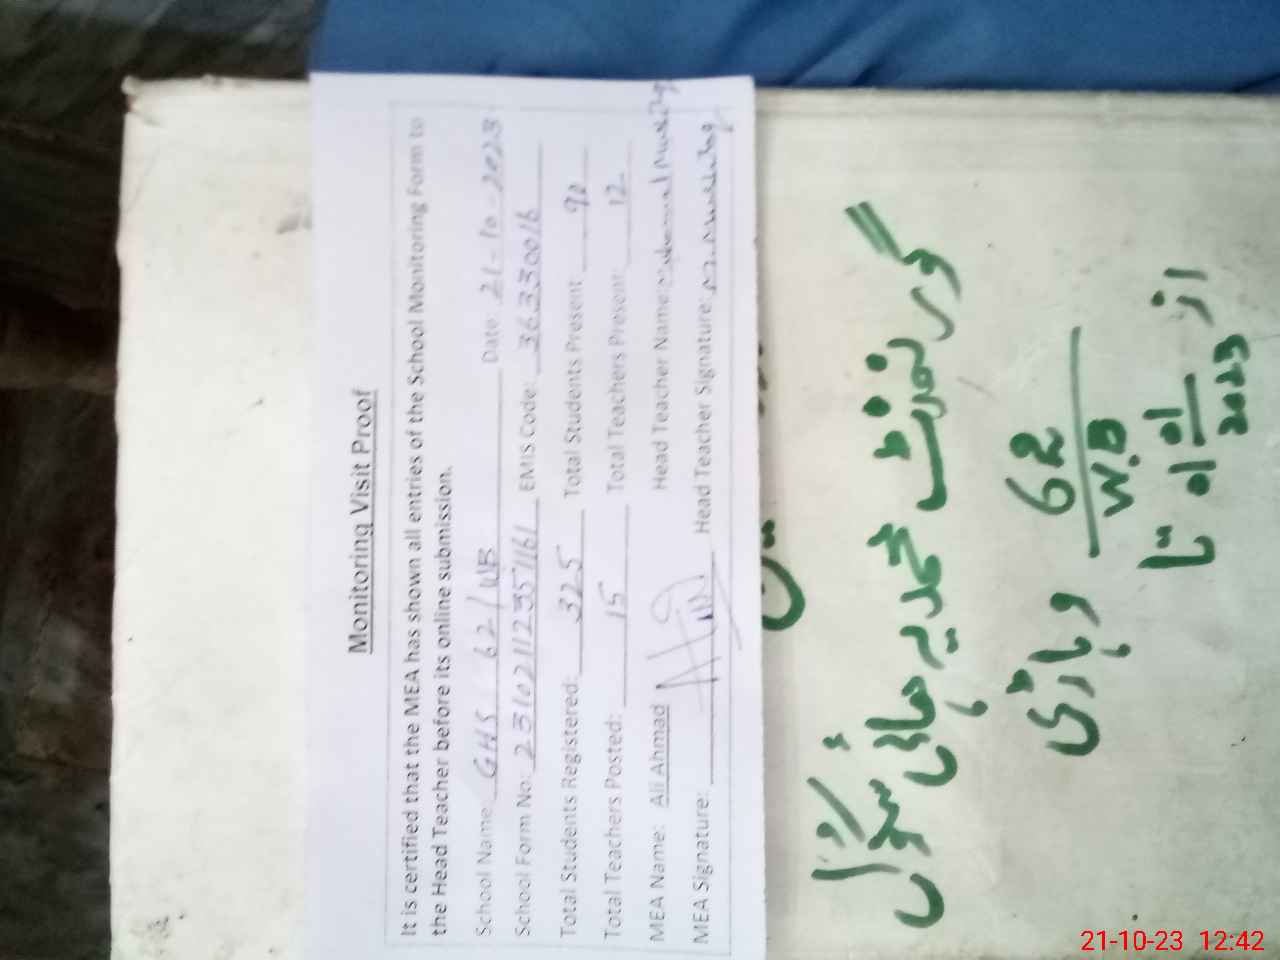 Monitoring Visit Proof
It is certified that the MEA has shown all entries of the School Monitoring Form to
the Head Teacher before its online submission.
School Name: GHS 62/WB Date: 21-10-2023
School Form No: EMIS Code: 36330016
Total Students Registered: 325 Total Students Present: 90
Total Teachers Posted: 15 Total Teachers Present: 12
MEA Name: Ali Ahmad Head Teacher Name: Muhammad Mushtaq
MEA Signature: Head Teacher Signature: M. Mushtaq
گورنمنٹ محمدیہ ہائی سکول
62
W.B
وہاڑی
از
01
01
2023
تا
21-10-23 12:42